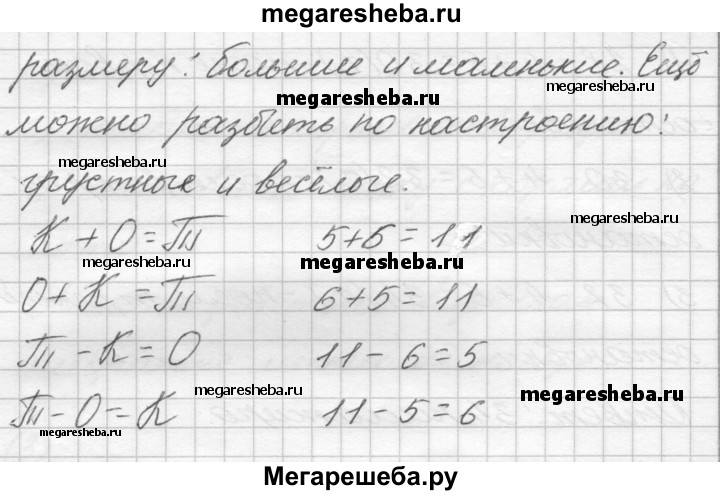 megaresheba.ru
размеру: большие и маленькие. Ещё
megaresheba.ru
можно разбить по настроению:
megaresheba.ru
грустные и весёлые.
megaresheba.ru
К + О = Т 5+6=11
megaresheba.ru megaresheba.ru
О + К = Т 6+5=11
Т - К = О 11-6=5
megaresheba.ru megaresheba.ru
Т - О = К 11-5=6
megaresheba.ru
Мегарешеба.ру